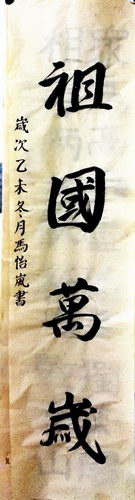 祖國萬歲
歲次乙未冬月馬怡嵐書